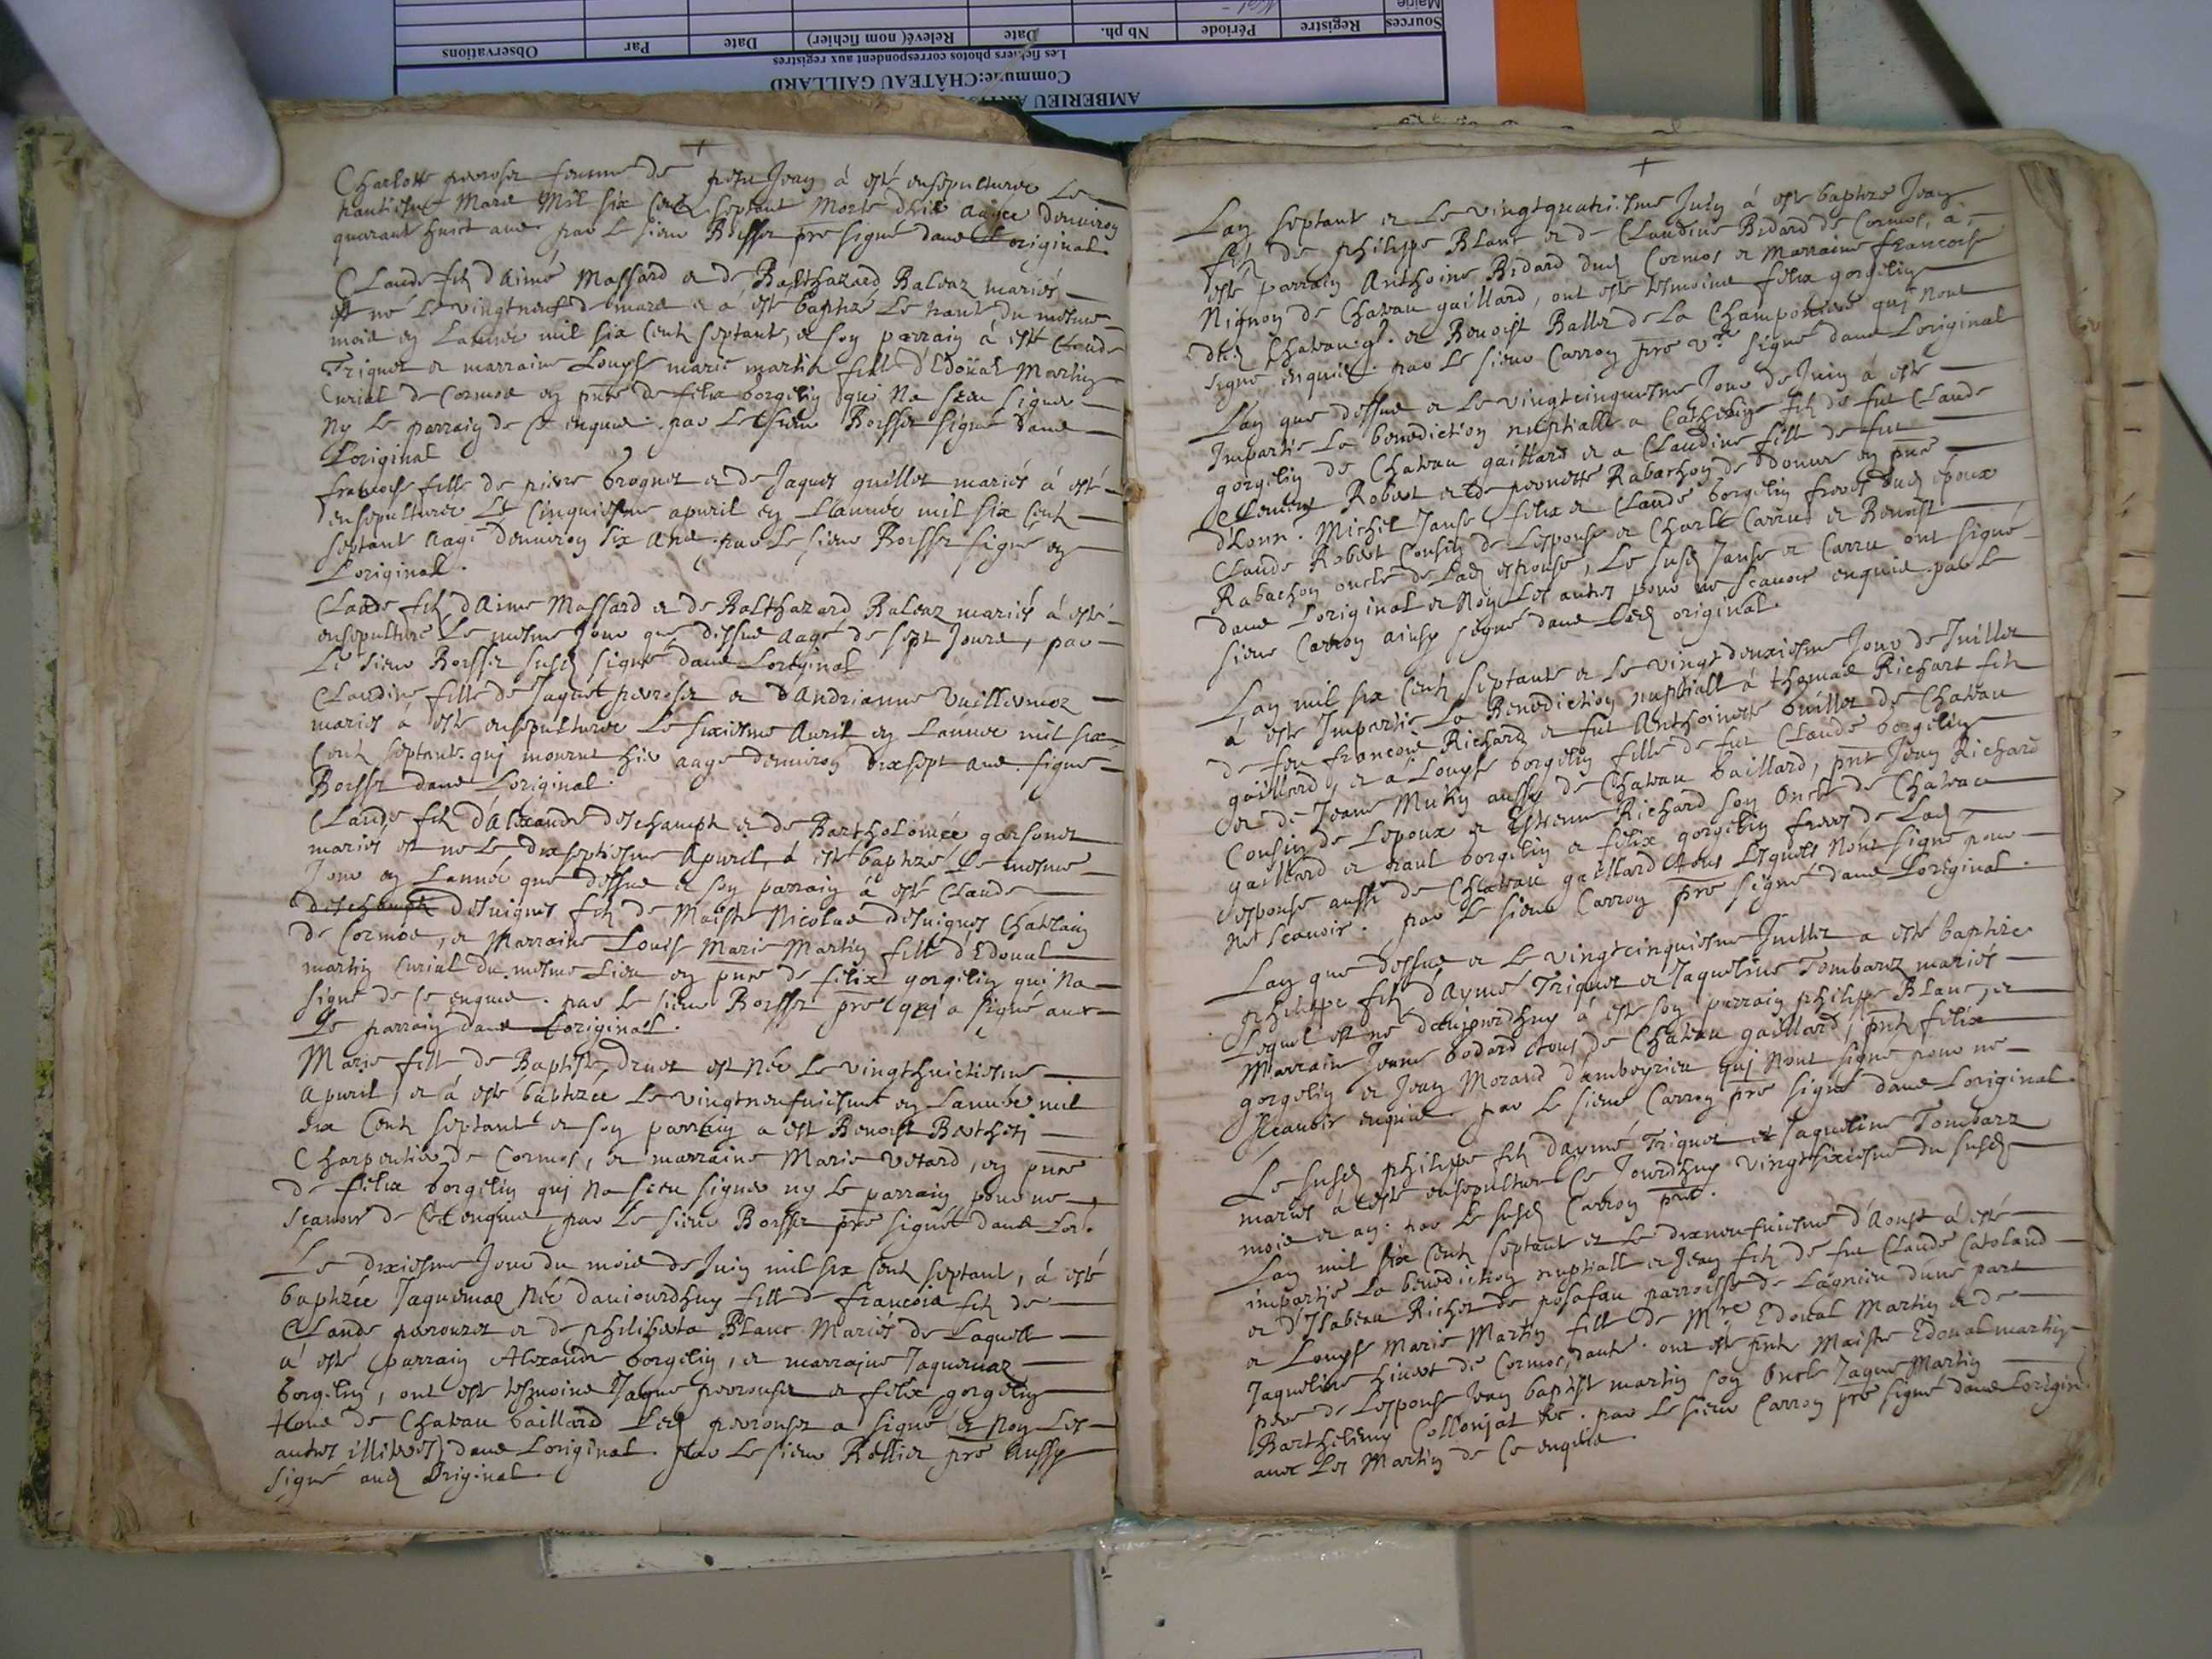 AMBERIEU
Commune:CHÂTEAU GAILLARD
Les fichiers photos correspondent aux registres
Sources Registre Période Nb ph. Date Relevé (nom fichier) Date Par Observations
Mairie
Charlotte perroser femme de petit Jean à esté ensepulturée Le
trantiesme Mars Mil six cent septant Morte d'hier aagée d'enuiron
quarant huict ans. par le sieur Boisser pre signé dans l'original.
Claude fils d'Aimé Massard et de Balthazard Baleaz mariés
est né le vingtneuf de mars et a esté baptizé le trante du mesme
mois en L'année mil six cent septant, et son parrain à esté Claude
Triquet et marraine Louyse marie martin fille d'Edoüal Martin
Curial de Cormoz en pnce de felix gorgelin qui Na sceu signer
Ny le parrain de ce enquis. par Le sieur Boisser signé dans
L'original
francoise fille de pierre brognet et de Jaques guillet mariés à esté
ensepulturée Le Cinquiesme apuril en L'année mil six cent
septant aagé d'enuiron six ans par Le sieur Boisser signé en
L'original.
Claude fils d'Aime Massard et de Balthazard Baleaz mariés à esté
ensepulturé Le mesme Jour que dessus aagé de sept Jours, par
Le sieur Boisser susd signé dans L'original
Claudine fille de Jaques perroser et d'Andrianne Vuillermoz
mariés à esté ensepulturée Le sixiesme Auril en L'année mil six
Cent septante. qui mourut hier aagé d'enuiron dixsept ans. signé
Boisser dans L'original.
Claude fils d'Alexandre deschamps et de Bartholomée garsonet
mariés est né Le dixseptiesme Apuril, à esté baptizé Le mesme
Jour en L'année que dessus et son parrain à esté Claude
deschamps desuignes fils de Maistre Nicolas desuignes Chatelain
de Cormoz, et Marraine Louise Marie Martin fille d'Edoual
martin Curial du mesme Lieu en pnce de felix gorgelin qui Na
signé de ce enquis. par Le sieur Boisser pre qui a signé auec
Le parrain dans L'original.
Marie fille de Baptiste druet est Née Le vingthuictiesme
Apuril, et à esté baptizée Le vingtneufuiesme en L'année mil
six Cent septant et son parrain a est Benoist Berthet
Charpentier de Cormos, et marraine Marie Vetard, en pnce
de felix gorgelin qui Na sceu signer ny le parrain pour ne
scauoir de ce enquis, par Le sieur Boisser pre signé dans L'or.
Le dixiesme Jour du mois de Juin mil six cent septant, à esté
baptizée Jaquemaz Née d'auiourdhuy fille de francois fils de
Claude perrouzet et de philiberta Blanc Mariés de Laquelle
à esté parrain Alexandre gorgelin, et marraine Jaquemaz
gorgelin, ont este tesmoins Jaque perrouset et felix gorgelin
tous de Chateau gaillard Led perrouset a signé et Non Les
autres illiterés dans L'original. par Le sieur Rollier pre Aussy
signé aud Original.
L'an septant et Le vingtquatriesme Juin à esté baptizé Jean
fils de philippe Blanc et de Claudine Bidard de Cormos, à
esté parrain Anthoine Bidard dud Cormos et Marraine francoise
Nignon de Chateau gaillard, ont esté tesmoins felix gorgelin
dud Chateau gl. et Benoist Ballet de La Championiere qui N'ont
signé enquis. par Le sieur Carron pre vre signé dans L'original
L'an que dessus et Le vingtcinquiesme Jour de Juin à esté
Impartie La benediction nuptialle a Catherin fils de fut Claude
gorgelin de Chateau gaillard et a Claudine fille de fut
Clement Robert et de pernette Rabachon de Douure en pnce
d'honn. Michel Janse, felix et Claude gorgelin freres dud époux
Claude Robert Cousin de L'espouse et Charle Carrut et Benoist
Rabachon oncle de Lad espouse, Le susd Janse et Carru ont signé
dans L'original et Non Les autres pour ne scauoir enquis. par Le
sieur Carron ainsy signé dans Led original.
L'an mil six Cent septante et Le vingt deuxiesme Jour de Juillet
à esté Impartie La Benediction nuptiall à thomas Richart fils
de feu francois Richard et fut Anthoinette guillet de Chateau
gaillard, et à Louyse gorgelin fille de fut Claude gorgelin
et de Jeanne Mukin aussy de Chateau gaillard, pnt Jean Richard
Cousin de L'epoux et Estienne Richard son Oncle de Chateau
gaillard et Paul gorgelin et felix gorgelin freres de Lad
espouse aussi de Chateau gaillard tous Lesquels N'ont signé pour
Ne scauoir. par Le sieur Carron pre signé dans L'original.
L'an que dessus et Le vingtcinquiesme Juillet a esté baptizé
philippe fils d'Aymé Triquet et Jaqueline Tombarez mariés
Lequel est né d'aujourdhuy à esté son parrain philippe Blanc, et
Marraine Jeanne bodard tous de Chateau gaillard, pnts felix
gorgelin et Jean Morand d'ambeyrieu qui N'ont signé pour ne
scauoir enquis. par Le sieur Carron pre signé dans L'original.
Le susd philippe fils d'aymé Triquet et Jaqueline Tombarz
mariés à esté ensepulturé ce Jourdhuy vingtsixiesme du susd
mois et an. par Le susd Carron pre.
L'an mil six Cent septante et Le dixneufuiesme d'Aoust à esté
impartie La benediction nuptiall a Jean fils de fut Claude Catoland
et d'Isabeau Richet de posafau parroisse de Lagnieu d'une part
et Louyse Marie Martin fille de Mre Edoual Martin et de
Jaqueline hinert de Cormos d'autre. ont esté pnts Maistre Edoual martin
pere de L'espouse Jean baptiste martin son Oncle Jaque Martin
Barthelemy Collonjat &c. par Le sieur Carron pre signé dans L'origin.
auec Les Martin de ce enquis.